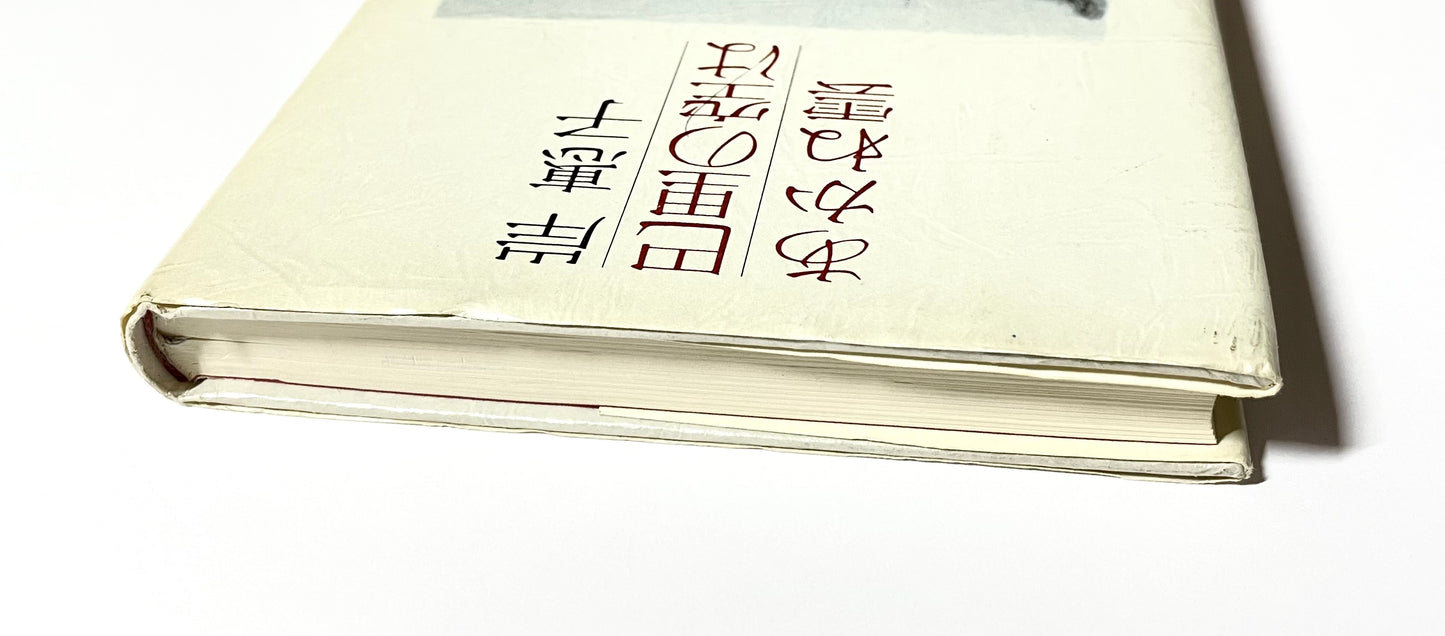 岸惠子
巴里の空は
あかね雲